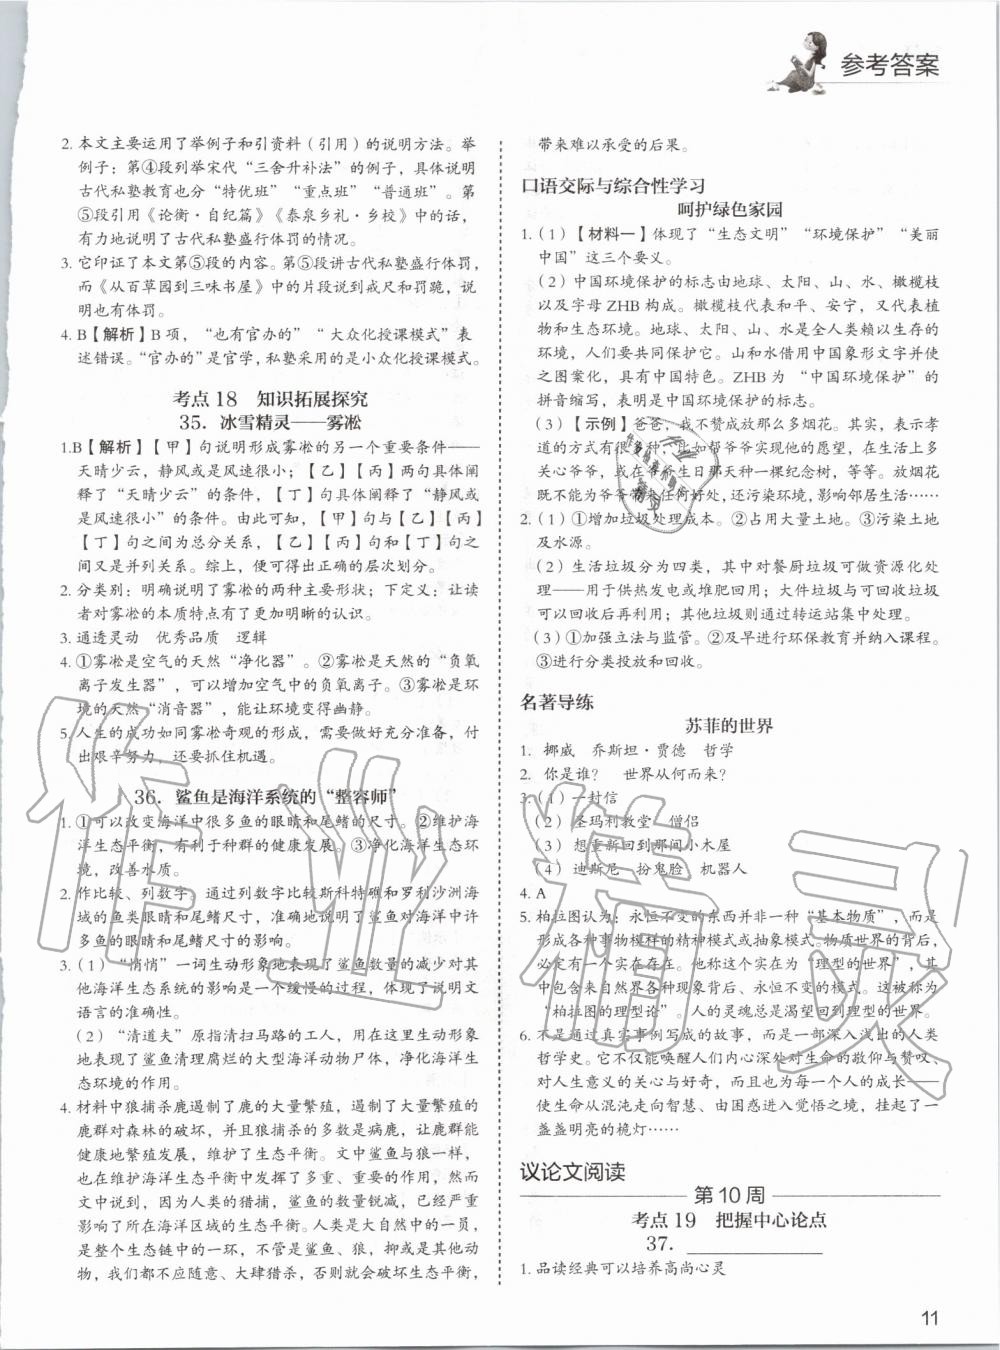 参考答案
2. 本文主要运用了举例子和引资料（引用）的说明方法。举
例子：第④段列举宋代“三舍升补法”的例子，具体说明
古代私塾教育也分“特优班”“重点班”“普通班”。第
⑤段引用《论衡·自纪篇》《泰泉乡礼·乡校》中的话，
有力地说明了古代私塾盛行体罚的情况。
3. 它印证了本文第⑤段的内容。第⑤段讲古代私塾盛行体罚，
而《从百草园到三味书屋》中的片段说到戒尺和罚跪，说
明也有体罚。
4. B【解析】B 项，“也有官办的”“大众化授课模式”表
述错误。“官办的”是官学，私塾采用的是小众化授课模式。
考点 18 知识拓展探究
35. 冰雪精灵——雾凇
1.B【解析】【甲】句说明形成雾凇的另一个重要条件——
天晴少云，静风或是风速很小；【乙】【丙】两句具体阐
释了“天晴少云”的条件，【丁】句具体阐释了“静风或
是风速很小”的条件。由此可知，【甲】句与【乙】【丙】
【丁】句之间为总分关系，【乙】【丙】句和【丁】句之
间又是并列关系。综上，便可得出正确的层次划分。
2. 分类别：明确说明了雾凇的两种主要形状；下定义：让读
者对雾凇的本质特点有了更加明晰的认识。
3. 通透灵动 优秀品质 逻辑
4. ①雾凇是空气的天然“净化器”。②雾凇是天然的“负氧
离子发生器”，可以增加空气中的负氧离子。③雾凇是环
境的天然“消音器”，能让环境变得幽静。
5. 人生的成功如同雾凇奇观的形成，需要做好充分准备，付
出艰辛努力，还要抓住机遇。
36. 鲨鱼是海洋系统的“整容师”
1. ①可以改变海洋中很多鱼的眼睛和尾鳍的尺寸。②维护海
洋生态平衡，有利于种群的健康发展。③净化海洋生态环
境，改善水质。
2. 作比较、列数字 通过列数字比较斯科特礁和罗利沙洲海
域的鱼类眼睛和尾鳍尺寸，准确地说明了鲨鱼对海洋中许
多鱼的眼睛和尾鳍尺寸的影响。
3. （1）“悄悄”一词生动形象地表现了鲨鱼数量的减少对其
他海洋生态系统的影响是一个缓慢的过程，体现了说明文
语言的准确性。
（2）“清道夫”原指清扫马路的工人，用在这里生动形象
地表现了鲨鱼清理腐烂的大型海洋动物尸体，净化海洋生
态环境的作用。
4. 材料中狼捕杀鹿遏制了鹿的大量繁殖，遏制了大量繁殖的
鹿群对森林的破坏，并且狼捕杀的多数是病鹿，让鹿群能
健康地繁殖，维护了生态平衡。文中鲨鱼也与狼一样，在
维护海洋生态平衡中发挥了多重、重要的作用，然而，文
段中说到，因为人类的猎捕，鲨鱼的数量锐减，已经严重
影响了所在海洋区域的生态平衡。人类是大自然中的一员，
是整个生态链中的一环，不管是鲨鱼、狼，抑或是其他动
物，我们都不应随意、大肆猎杀，否则就会破坏生态平衡，
带来难以承受的后果。
口语交际与综合性学习
呵护绿色家园
1. （1）【材料一】体现了“生态文明”“环境保护”“美丽
中国”这三个要义。
（2）中国环境保护的标志由地球、太阳、山、水、橄榄枝
以及字母 ZHB 构成。橄榄枝代表和平、安宁，又代表植
物和生态环境。地球、太阳、山、水是全人类赖以生存的
环境，人们要共同保护它。山和水借用中国象形文字并使
之图案化，具有中国特色。ZHB 为“中国环境保护”的
拼音缩写，表明是中国环境保护的标志。
（3）【示例】爸爸，我不赞成放那么多烟花。其实，表示孝
道的方式有很多种，比如帮爷爷实现他的愿望，在生活上多
关心爷爷，或在爷爷生日那天种一棵纪念树，等等。放烟花
既不能为爷爷带来任何好处，还污染环境，影响邻居生活……
2. （1）①增加垃圾处理成本。②占用大量土地。③污染土地
及水源。
（2）生活垃圾分为四类，其中对餐厨垃圾可做资源化处
理——用于供热发电或堆肥回用；大件垃圾与可回收垃圾
可以回收后再利用；其他垃圾则通过转运站集中处理。
（3）①加强立法与监管。②及早进行环保教育并纳入课程。
③进行分类投放和回收。
名著导练
苏菲的世界
1. 挪威 乔斯坦·贾德 哲学
2. 你是谁？ 世界从何而来？
3. （1）一封信
（2）圣玛利教堂 僧侣
（3）想重新回到那间小木屋
（4）迪斯尼 扮鬼脸 机器人
4. A
5. 柏拉图认为：永恒不变的东西并非一种“基本物质”，而是
形成各种事物模样的精神模式或抽象模式。物质世界的背后，
必定有一个实在存在。他称这个实在为“理型的世界”，其
中包含来自然界各种现象背后、永恒不变的模式。这被称为
“柏拉图的理型论”。人的灵魂总是渴望回到理型的世界。
6. 不是通过真实事例写成的故事，而是一部深入浅出的人类
哲学史。它不仅能唤醒人们内心深处对生命的敬仰与赞叹、
对人生意义的关心与好奇，而且也为每一个人的成长——
使生命从混沌走向智慧、由困惑进入觉悟之境，挂起了一
盏盏明亮的桅灯……
议论文阅读
第 10 周
考点 19 把握中心论点
37.
1. 品读经典可以培养高尚心灵
11
作业精灵